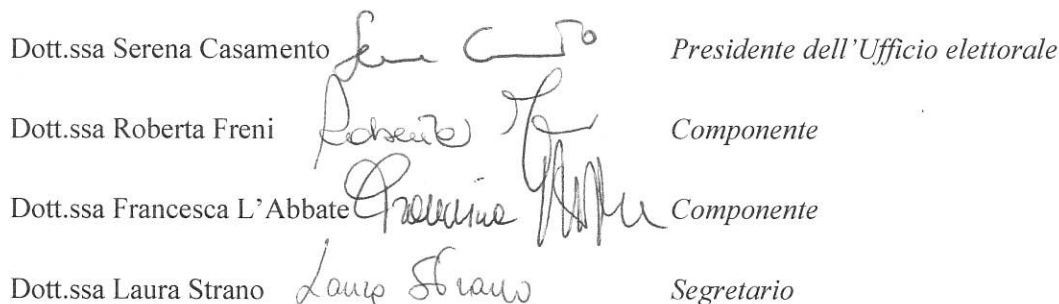 Dott.ssa Serena Casamento Serena C Presidente dell'Ufficio elettorale
Dott.ssa Roberta Freni Roberta Componente
Dott.ssa Francesca L'Abbate Francesca Componente
Dott.ssa Laura Strano Laura Strano Segretario